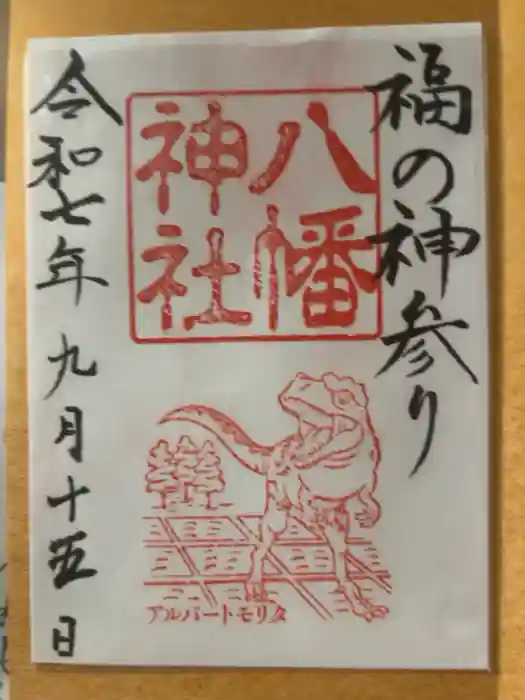 福の神参り
八幡
神社
令和七年九月十五日
アルバートモリタ